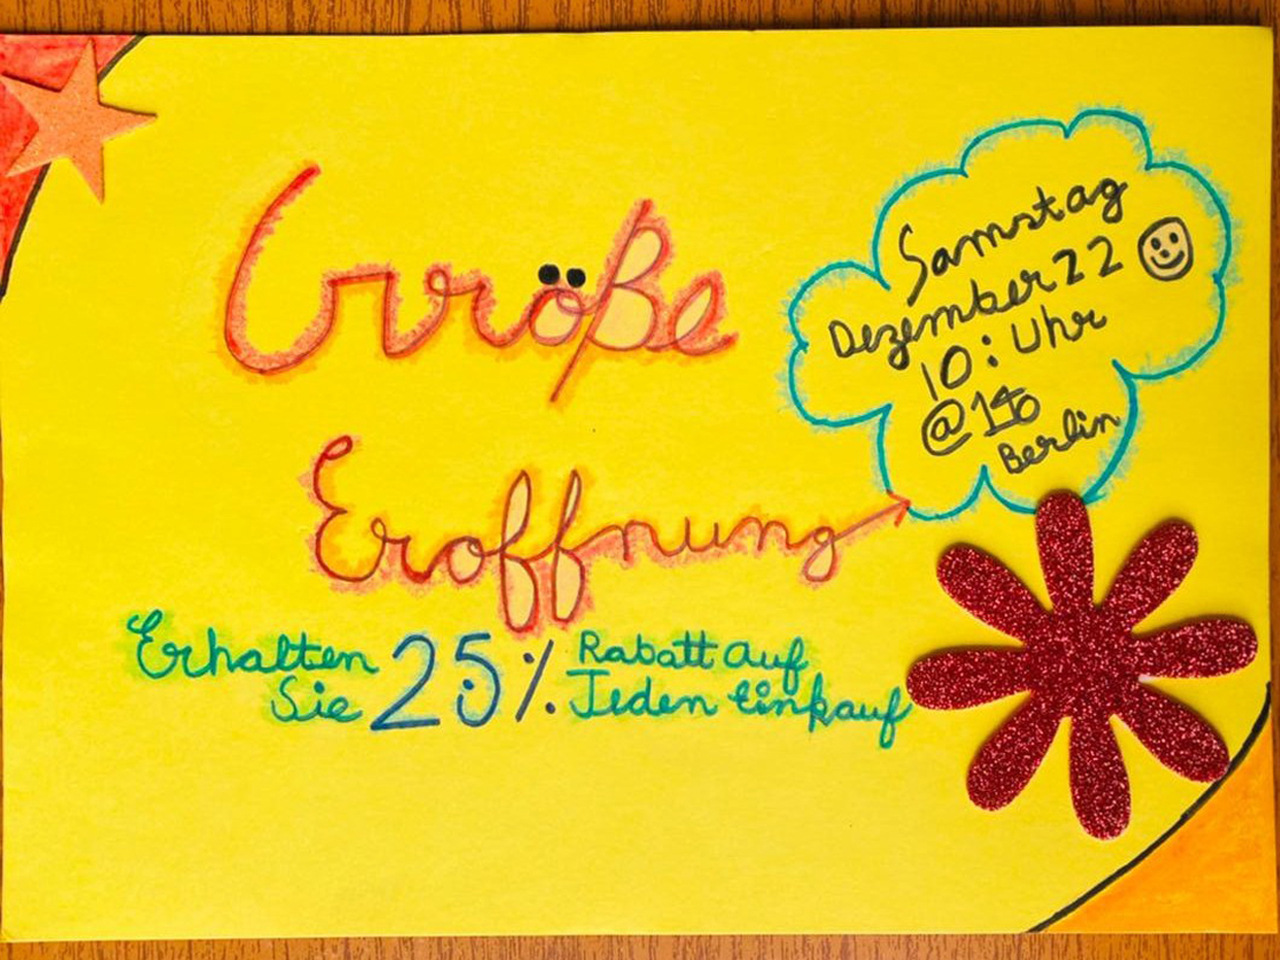 Größe
Eroffnung
Samstag
Dezember 22
10: Uhr
@140
Berlin
Erhalten
Sie 25%
Rabatt auf
Jeden Einkauf